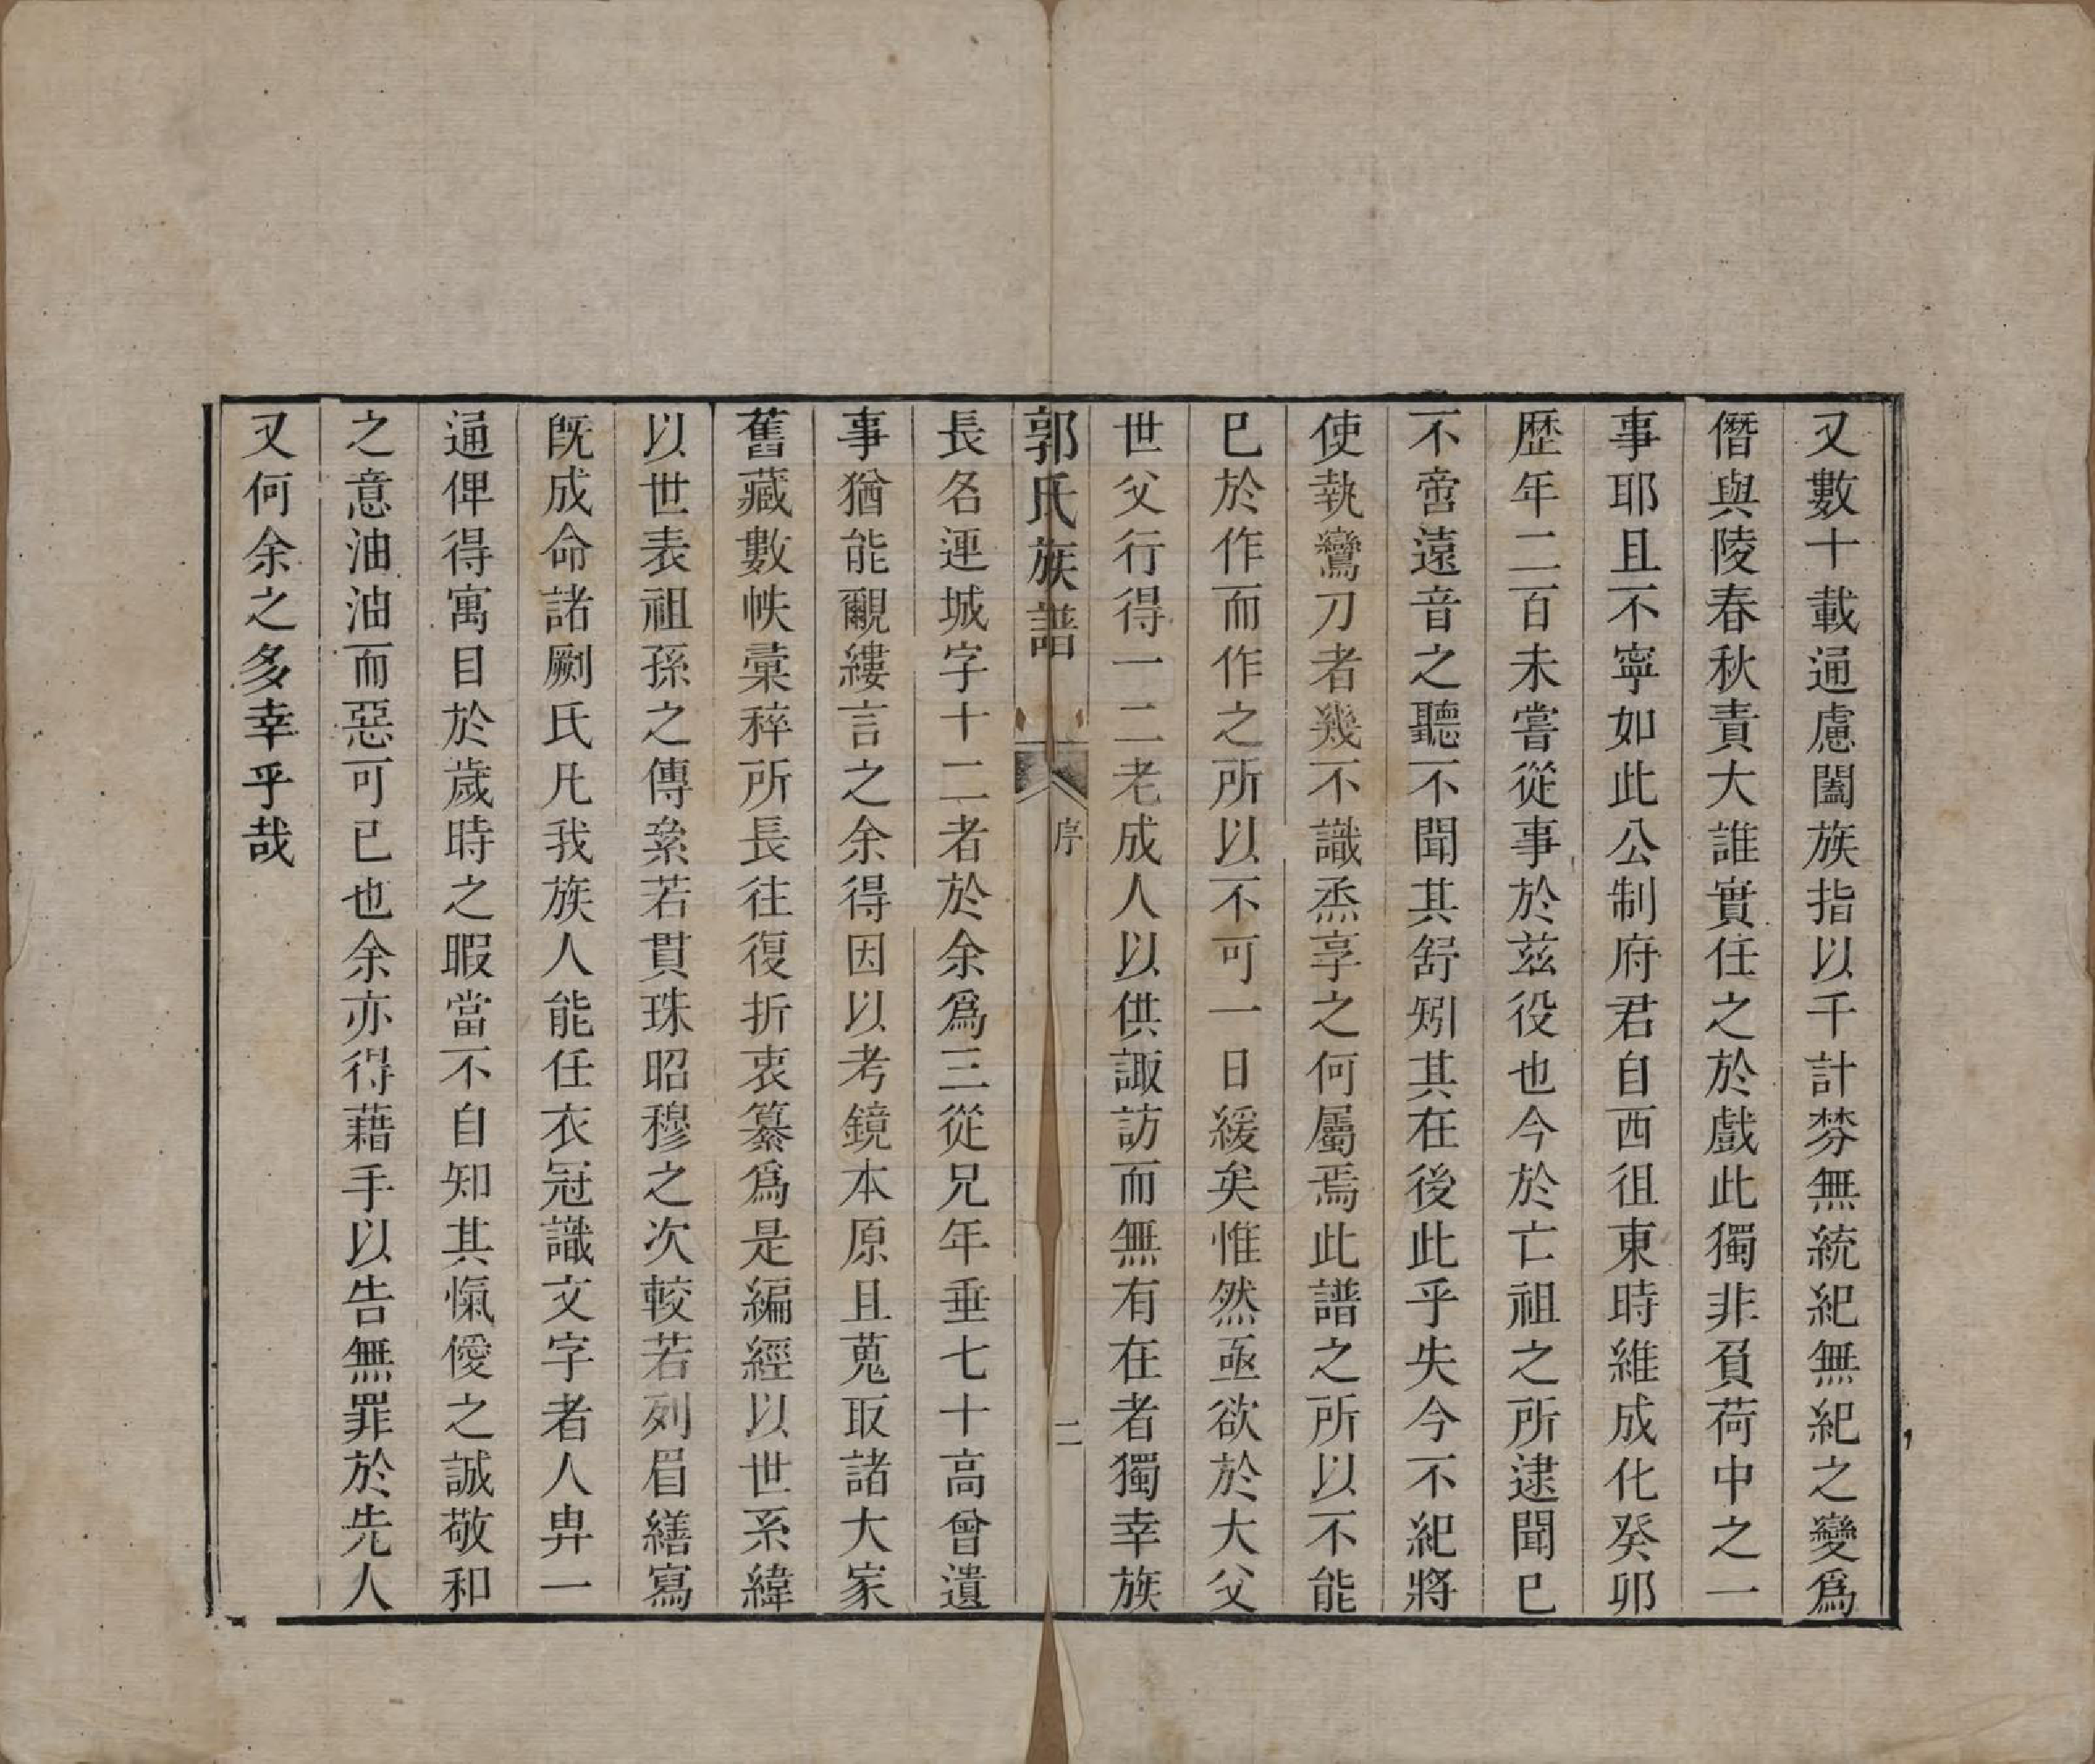 又數十載通慮闔族指以千計棼無統紀無紀之變爲
僭與陵春秋責大誰實任之於戲此獨非負荷中之一
事耶且不寧如此公制府君自西徂東時維成化癸卯
歷年二百未嘗從事於茲役也今於亡祖之所逮聞已
不啻遠音之聽不聞其舒矧其在後此乎失今不紀將
使執鸞刀者幾不識烝享之何屬焉此譜之所以不能
已於作而作之所以不可一日緩矣惟然亟欲於大父
世父行得一二老成人以供諏訪而無有在者獨幸族
郭氏族譜 序 二
長名連城字十二者於余爲三從兄年垂七十高曾遺
事猶能覼縷言之余得因以考鏡本原且蒐取諸大家
舊藏數帙彙稡所長往復折衷纂爲是編經以世系緯
以世表祖孫之傳絫若貫珠昭穆之次較若列眉繕寫
旣成命諸剞氏凡我族人能任衣冠識文字者人畁一
通俾得寓目於歲時之暇當不自知其愾僾之誠敬和
之意油油而惡可已也余亦得藉手以告無罪於先人
又何余之多幸乎哉